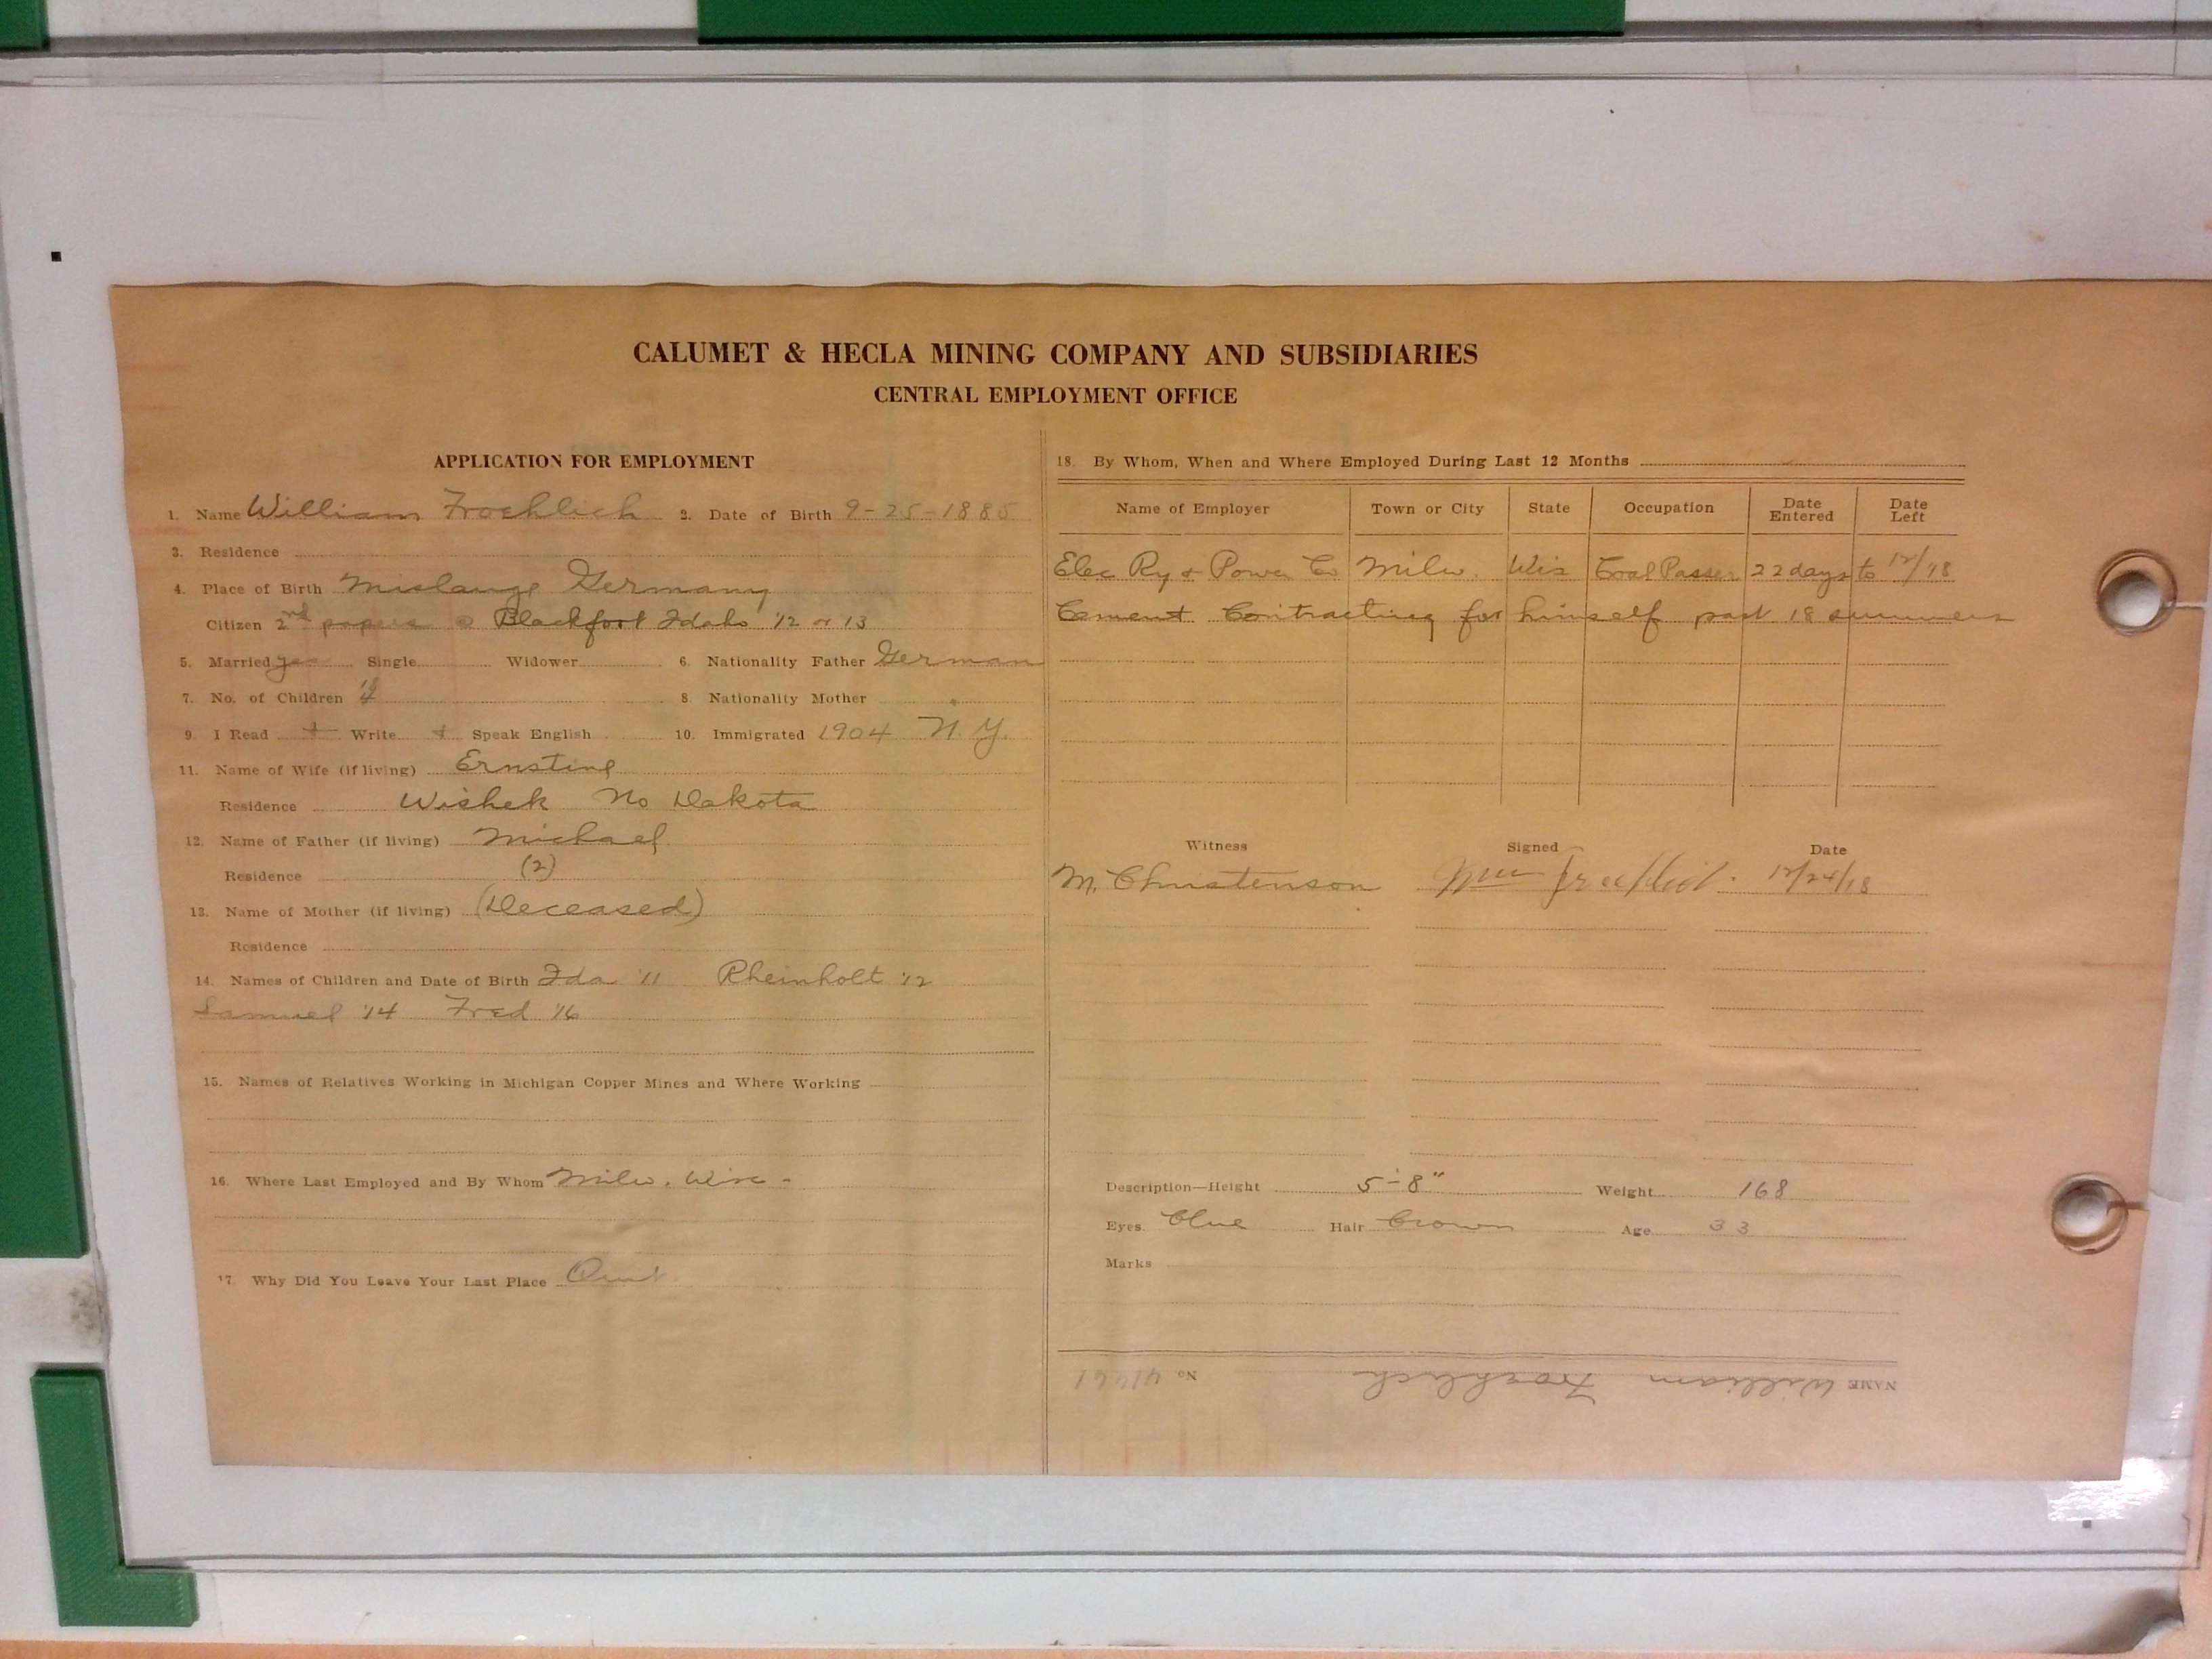 CALUMET & HECLA MINING COMPANY AND SUBSIDIARIES
CENTRAL EMPLOYMENT OFFICE
APPLICATION FOR EMPLOYMENT
1. Name William Froehlich 2. Date of Birth 9-25-1885
3. Residence
4. Place of Birth Germany
Citizen 2nd papers @ Blackfoot Idaho '12 or 13
5. Married yes Single Widower 6. Nationality Father German
7. No. of Children 4 8. Nationality Mother "
9. I Read + Write + Speak English 10. Immigrated 1904 N.Y.
11. Name of Wife (if living) Ernstine
Residence Wishek No Dakota
12. Name of Father (if living) Michael
Residence (2)
13. Name of Mother (if living) (Deceased)
Residence
14. Names of Children and Date of Birth Ida '11 Rheinholt '12
Samuel '14 Fred '16
15. Names of Relatives Working in Michigan Copper Mines and Where Working
16. Where Last Employed and By Whom Milw. Wisc -
17. Why Did You Leave Your Last Place Quit
18. By Whom, When and Where Employed During Last 12 Months
Name of Employer Town or City State Occupation Date Entered Date Left
Elec Ry & Power Co Milw. Wis Coal Passer 22 days to 12/18
Cement Contracting for himself past 18 summers
Witness Signed Date
M. Christenson Wm Froehlich 12/24/18
Description—Height 5-8" Weight 168
Eyes Blue Hair Brown Age 33
Marks
NAME William Froehlich No